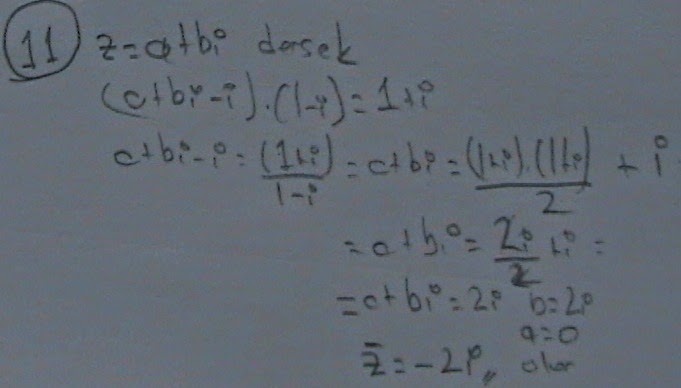 11 z=a+bi dersek
(a+bi-i).(1-i)=1+i
a+bi-i=(1+i)/1-i=a+bi=(1+i).(1+i)/2 + i
=a+bi=2i/2+i=
=a+bi=2i b=2i
a=0
z̄=-2i,, olur